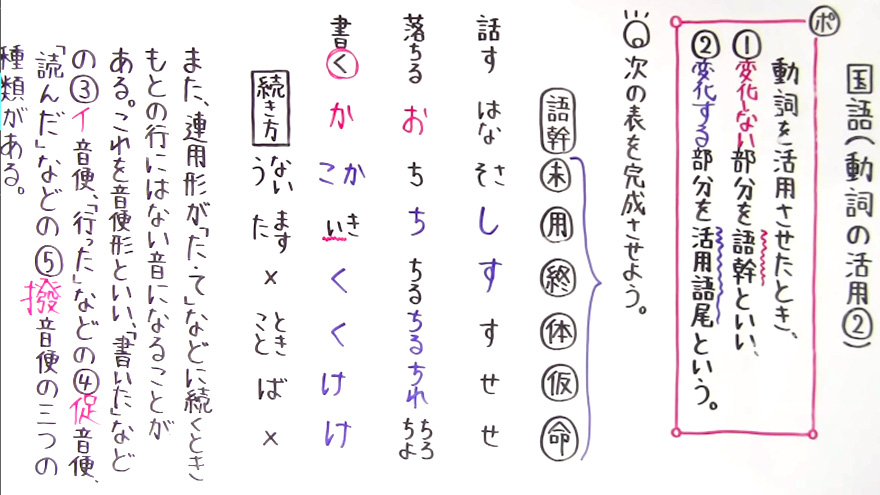 国語(動詞の活用②)
ポ
動詞を活用させたとき、
①変化しない部分を語幹といい、
②変化する部分を活用語尾という。
次の表を完成させよう。
語幹 未 用 終 体 仮 命
話す はな さ そ し す す せ せ
落ちる お ち ち ちる ちる ちれ ちろ ちよ
書く か か こ き い く く け け
続き方 ない う ます た × とき こと ば ×
また、連用形が「た・て」などに続くとき
もとの行にはない音になることが
ある。これを音便形といい、「書いた」など
の③イ音便、「行った」などの④促音便、
「読んだ」などの⑤撥音便の三つの
種類がある。